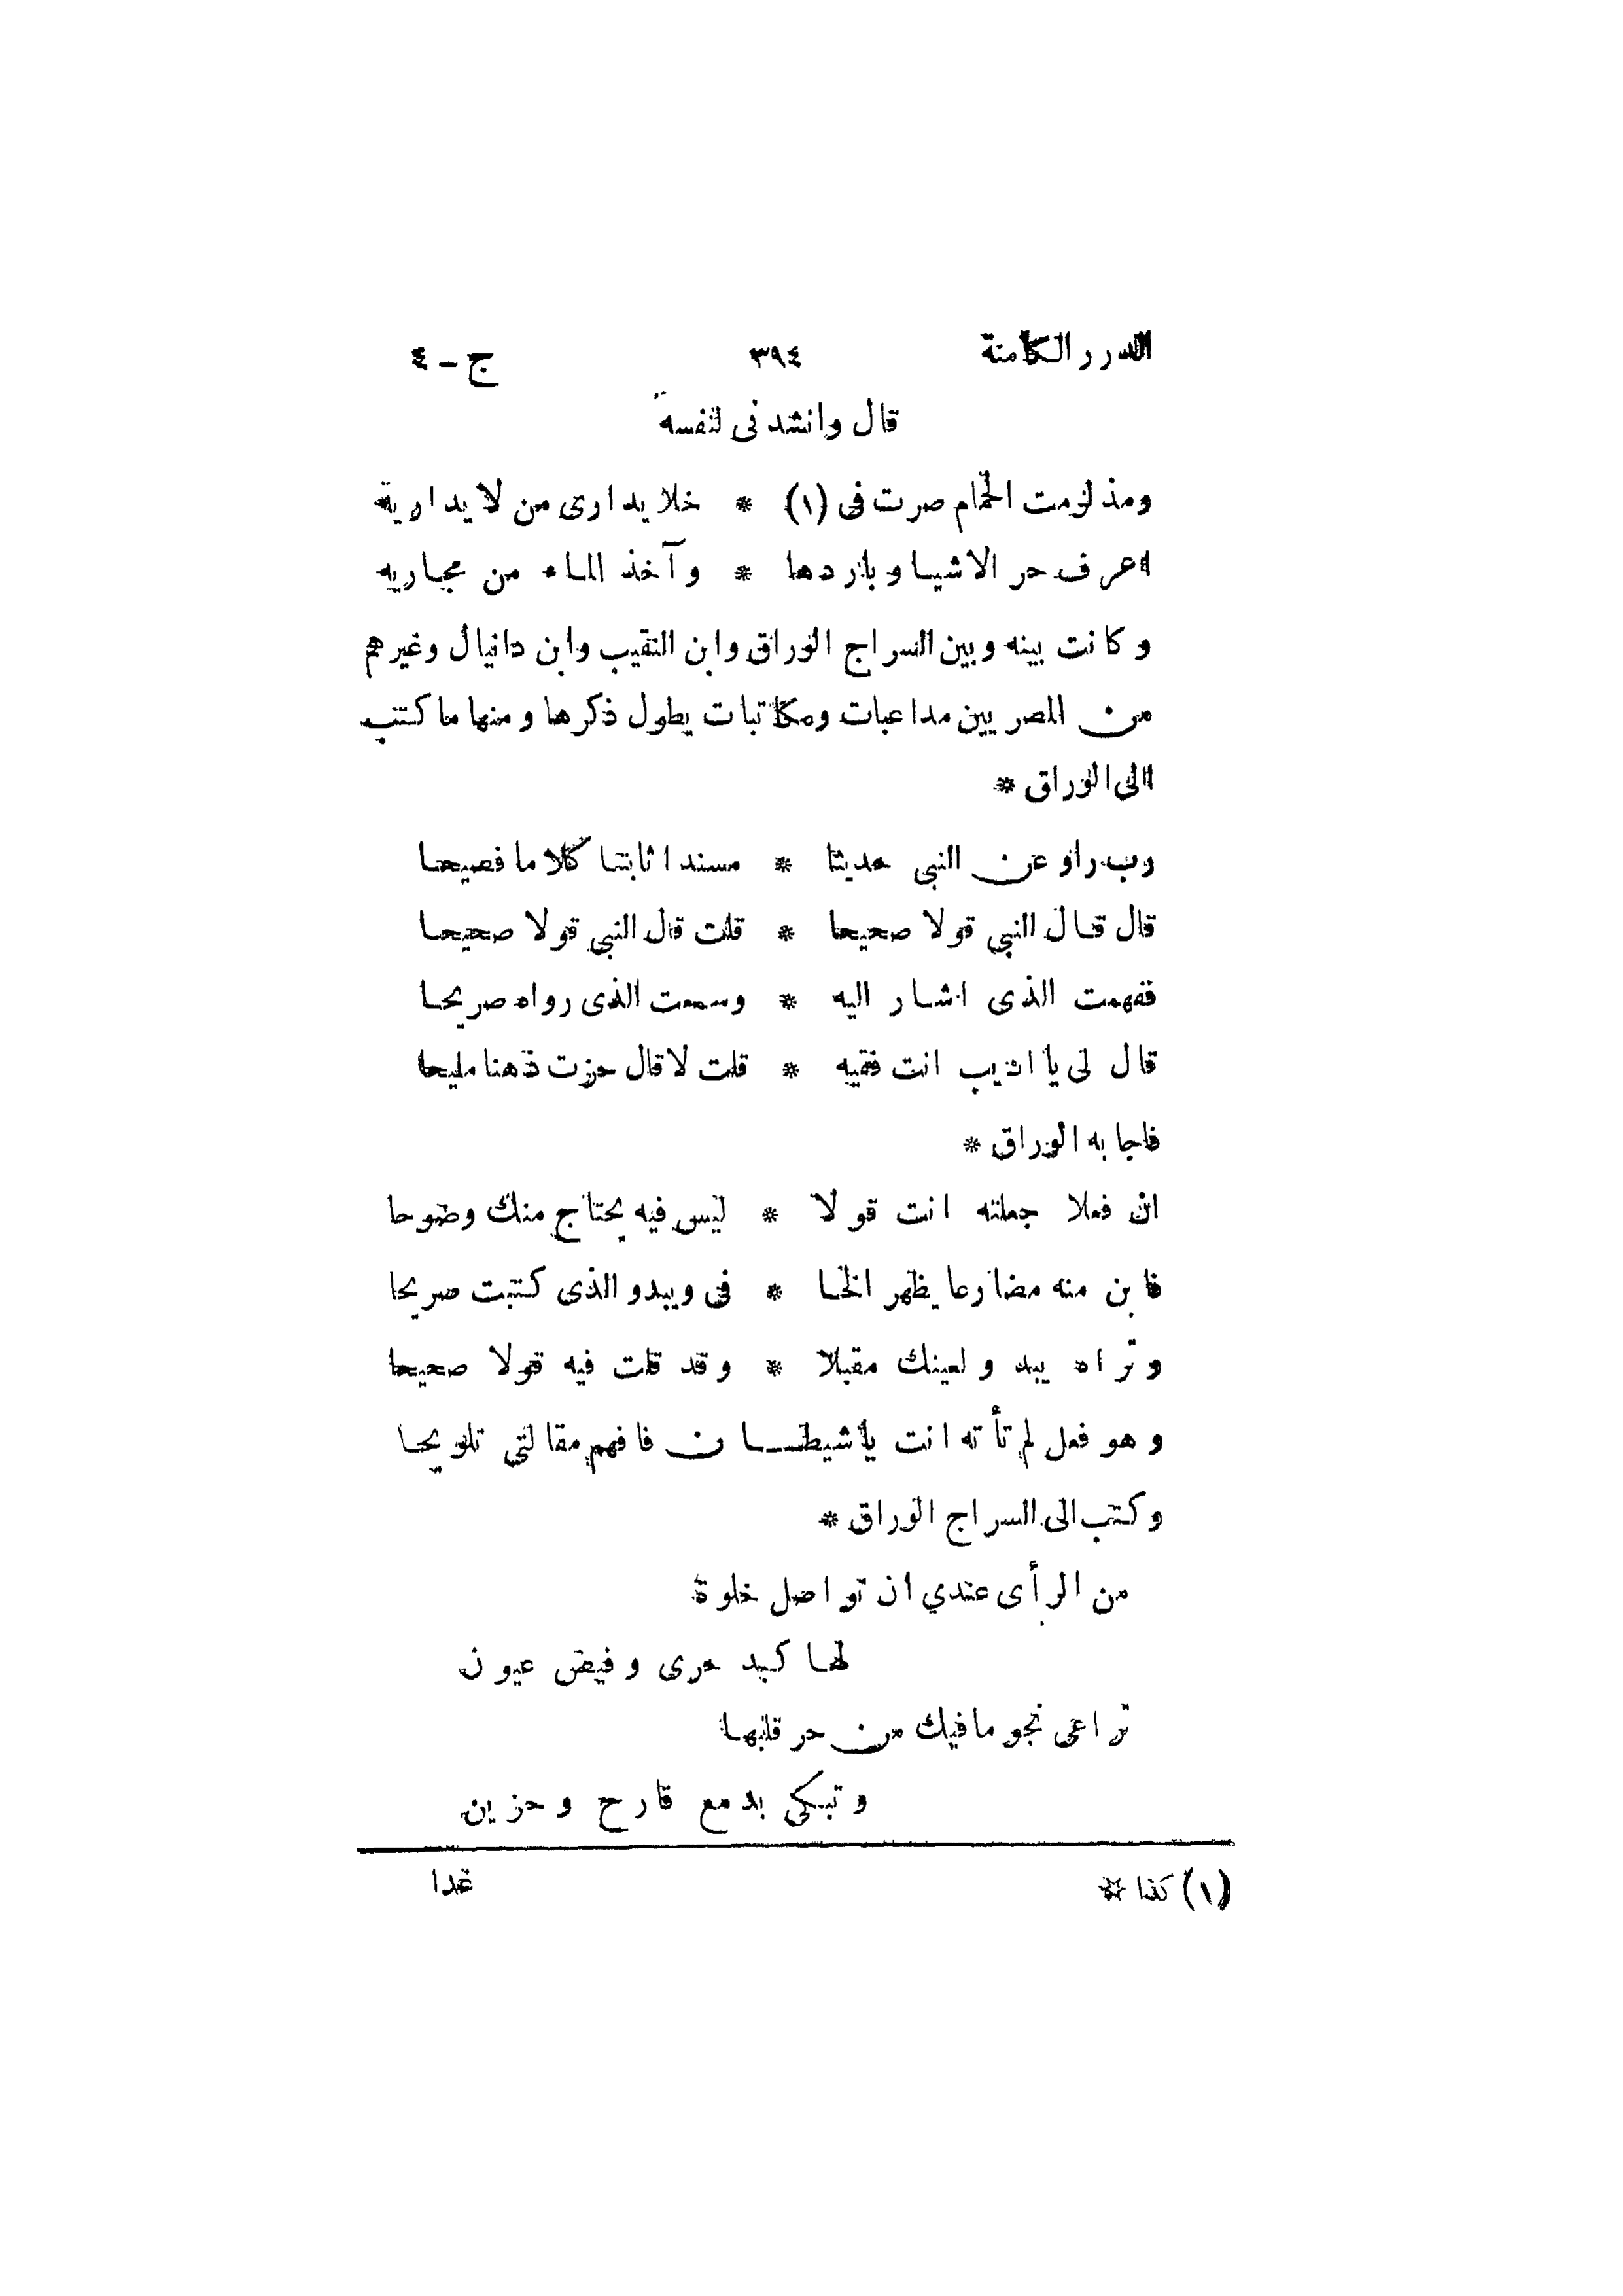 الدرر الكامنة ٣٩٤ ج - ٤
قال وانشدنى لنفسه
ومذ لزمت الحمام صرت فى (١) * خلا يدارى من لا يداريه
اعرف حر الاشيا وباردها * وآخذ الماء من مجاريه
وكانت بينه وبين السراج الوراق وابن النقيب وابن دانيال وغيرهم
من المصريين مداعبات ومكاتبات يطول ذكرها ومنها ما كتب
الى الوراق *
رب راو عن النبى حديثا * مسندا ثابتا كلاما فصيحا
قال قال النبى قولا صحيحا * قلت قال النبى قولا صحيحا
ففهمت الذى اشار اليه * وسمعت الذى رواه صريحا
قال لى يا اديب انت فقيه * قلت لا قال حزت ذهنا مليحا
فاجابه الوراق *
ان فعلا جعلته انت قولا * ليس فيه يحتاج منك وضوحا
فابن منه مضارعا يظهر الخا * فى ويبدو الذى كتبت صريحا
وتراه يبدو لعينك مقبلا * وقد قلت فيه قولا صحيحا
وهو فعل لم تأته انت يا شيطـــان فافهم مقالتى تلويحا
وكتب الى السراج الوراق *
من الرأى عندي ان تواصل خلوة
لها كبد حرى وفيض عيون
تراعى نجوما فيك من حر قلبها
وتبكى بدمع قارح وحزين
(١) كذا * غدا